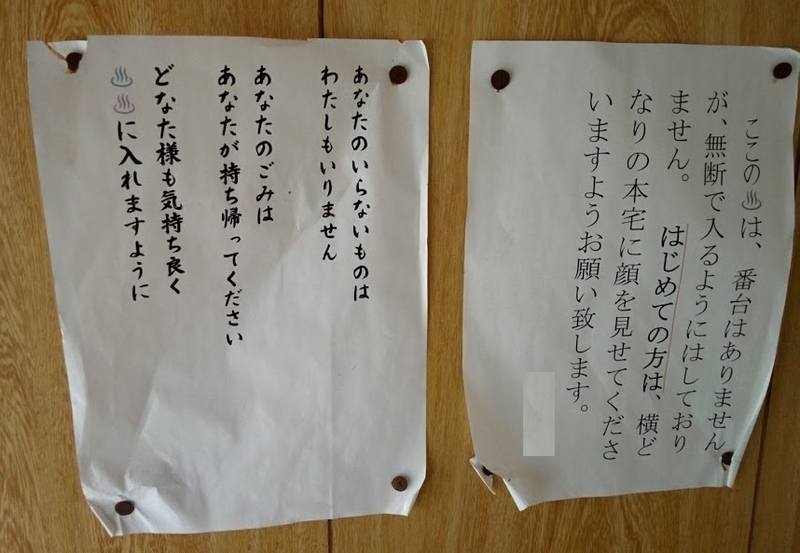 ここの♨は、番台はありません
が、無断で入るようにはしており
ません。　はじめての方は、横ど
なりの本宅に顔を見せてくださ
いますようお願い致します。
あなたのいらないものは
わたしもいりません
あなたのごみは
あなたが持ち帰ってください
どなた様も気持ち良く
♨♨に入れますように